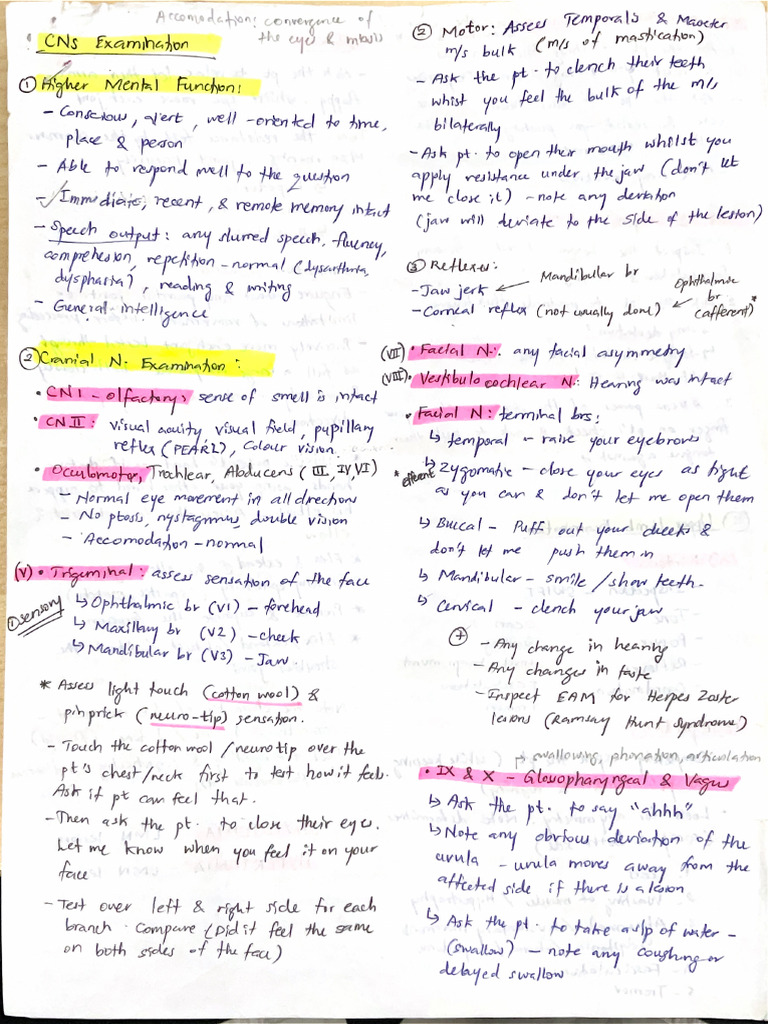 Accomodation: convergence of
the eyes & miosis
CNs Examination
① Higher Mental Function:
- Conscious, alert, well-oriented to time,
place & person
- Able to respond well to the question
- Immediate, recent, & remote memory intact
- Speech output: any slurred speech, fluency,
comprehesion, repetition - normal (dysarthria,
dysphasia), reading & writing
- General intelligence
② Cranial N. Examination:
• CN1 - olfactory: sense of smell is intact
• CN II: visual acuity visual field, pupillary
reflex (PEARL), Colour vision
• Occulomotor, Trochlear, Abducens (III, IV, VI)
- Normal eye movement in all directions
- No ptosis, nystagmus, double vision
- Accomodation - normal
(V) • Trigeminal: assess sensation of the face
① sensory
↳ Ophthalmic br (V1) - forehead
↳ Maxillary br (V2) - cheek
↳ Mandibular br (V3) - Jaw
* Assess light touch (cotton wool) &
pinprick (neuro-tip) sensation.
- Touch the cotton wool / neurotip over the
pt's chest/neck first to test how it feels.
Ask if pt can feel that.
- Then ask the pt. to close their eyes.
Let me know when you feel it on your
face
- Test over left & right side for each
branch. Compare (Did it feel the same
on both sides of the face)
② Motor: Assess Temporals & Masseter
m/s bulk (m/s of mastication)
- Ask the pt. to clench their teeth
whist you feel the bulk of the m/s
bilaterally
- Ask pt. to open their mouth whilst you
apply resistance under the jaw (don't let
me close it) - note any deviation
(jaw will deviate to the side of the lesion)
③ Reflexes:
- Jaw jerk ← Mandibular br
- Corneal reflex (not usually done) ← Ophthalmic
br
(afferent)*
(VII) • Facial N: any facial asymmetry
(VIII) • Vestibulocochlear N: Hearing was intact
• Facial N: terminal brs:
↳ temporal - raise your eyebrows
* efferent
↳ Zygomatic - close your eyes as tight
as you can & don't let me open them
↳ Buccal - Puff out your cheeks &
don't let me push them in
↳ Mandibular - smile / show teeth.
↳ Cervical - clench your jaw
⊕ - Any change in hearing
- Any changes in taste
- Inspect EAM for Herpes Zoster
lesions (Ramsay Hunt Syndrome)
↱ swallowing, phonation, articulation
• IX & X - Glossopharyngeal & Vagus
↳ Ask the pt. to say "ahhh"
↳ Note any obvious deviation of the
uvula - uvula moves away from the
affected side if there is a lesion
↳ Ask the pt. to take a sip of water -
(swallow) - note any coughing or
delayed swallow